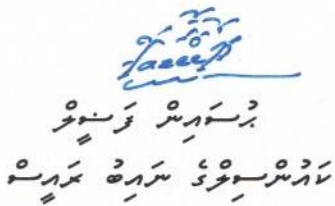 ޙުސައިން ފަޟީލް
ކައުންސިލްގެ ނައިބު ރައީސް